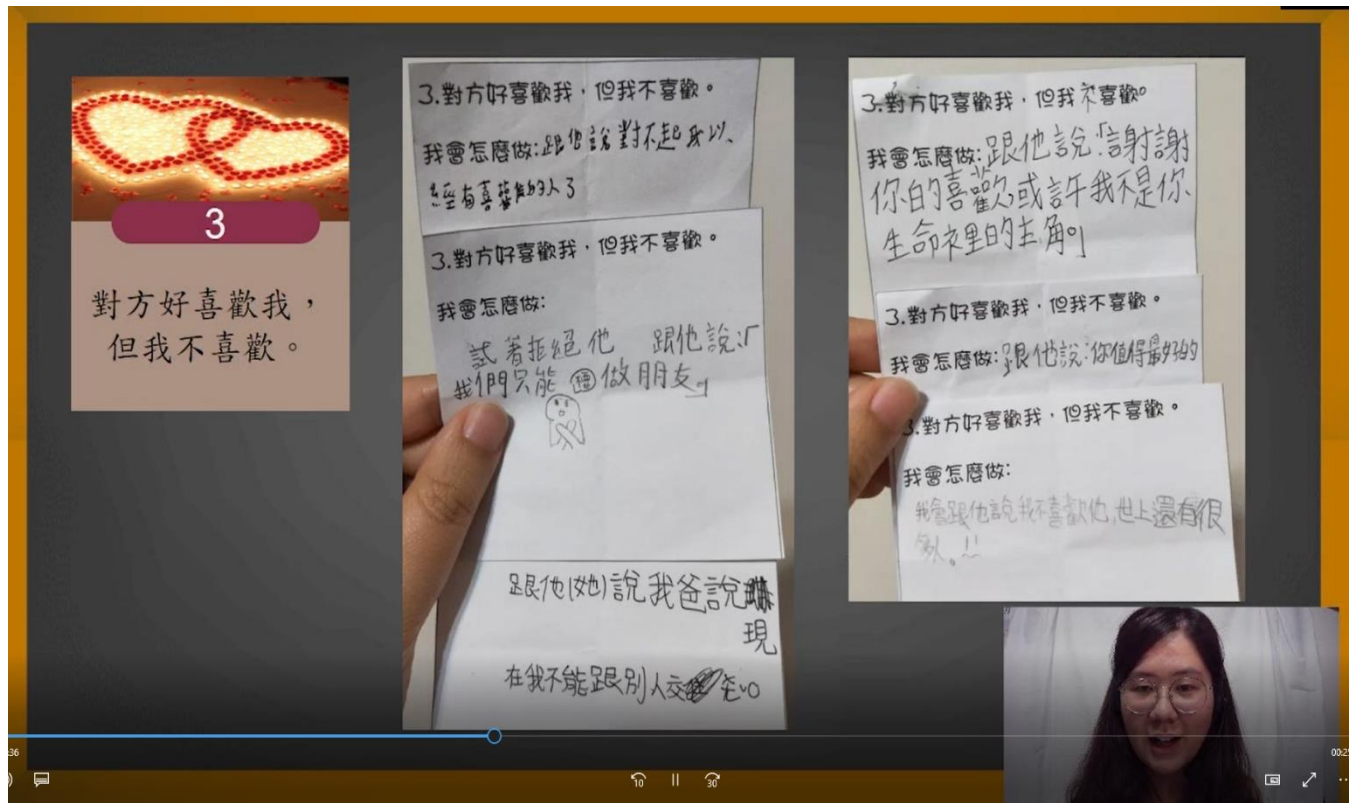 3
對方好喜歡我，
但我不喜歡。
3.對方好喜歡我，但我不喜歡。
我會怎麼做:跟他說對不起我以、
經有喜歡的人了
3.對方好喜歡我，但我不喜歡。
我會怎麼做:
試著拒絕他 跟他說:「
我們只能 做朋友」
跟他(她)說我爸說
現
在我不能跟別人交
3.對方好喜歡我，但我不喜歡。
我會怎麼做:跟他說:「謝謝
你的喜歡或許我不是你
生命裡的主角。」
3.對方好喜歡我，但我不喜歡。
我會怎麼做:跟他說:你值得最好的
3.對方好喜歡我，但我不喜歡。
我會怎麼做:
我會跟他說我不喜歡他,世上還有很
多人。!!
:36
00:25
10
30